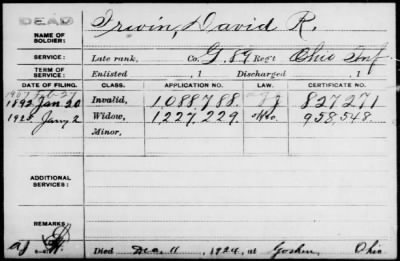 DEAD
NAME OF SOLDIER: Irwin, David R.
SERVICE: Late rank, Co. G, 89 Reg't Ohio Inf
TERM OF SERVICE: Enlisted , 1 Discharged , 1
DATE OF FILING. CLASS. APPLICATION NO. LAW. CERTIFICATE NO.
1907 Feb-27
1892 Jan 20 Invalid, 1.088.788. 827271
Jany 2 Widow, 1.227.229. 958.548.
Minor,
ADDITIONAL SERVICES:
REMARKS:
Died Dec. 11, 1924, at Goshen, Ohio